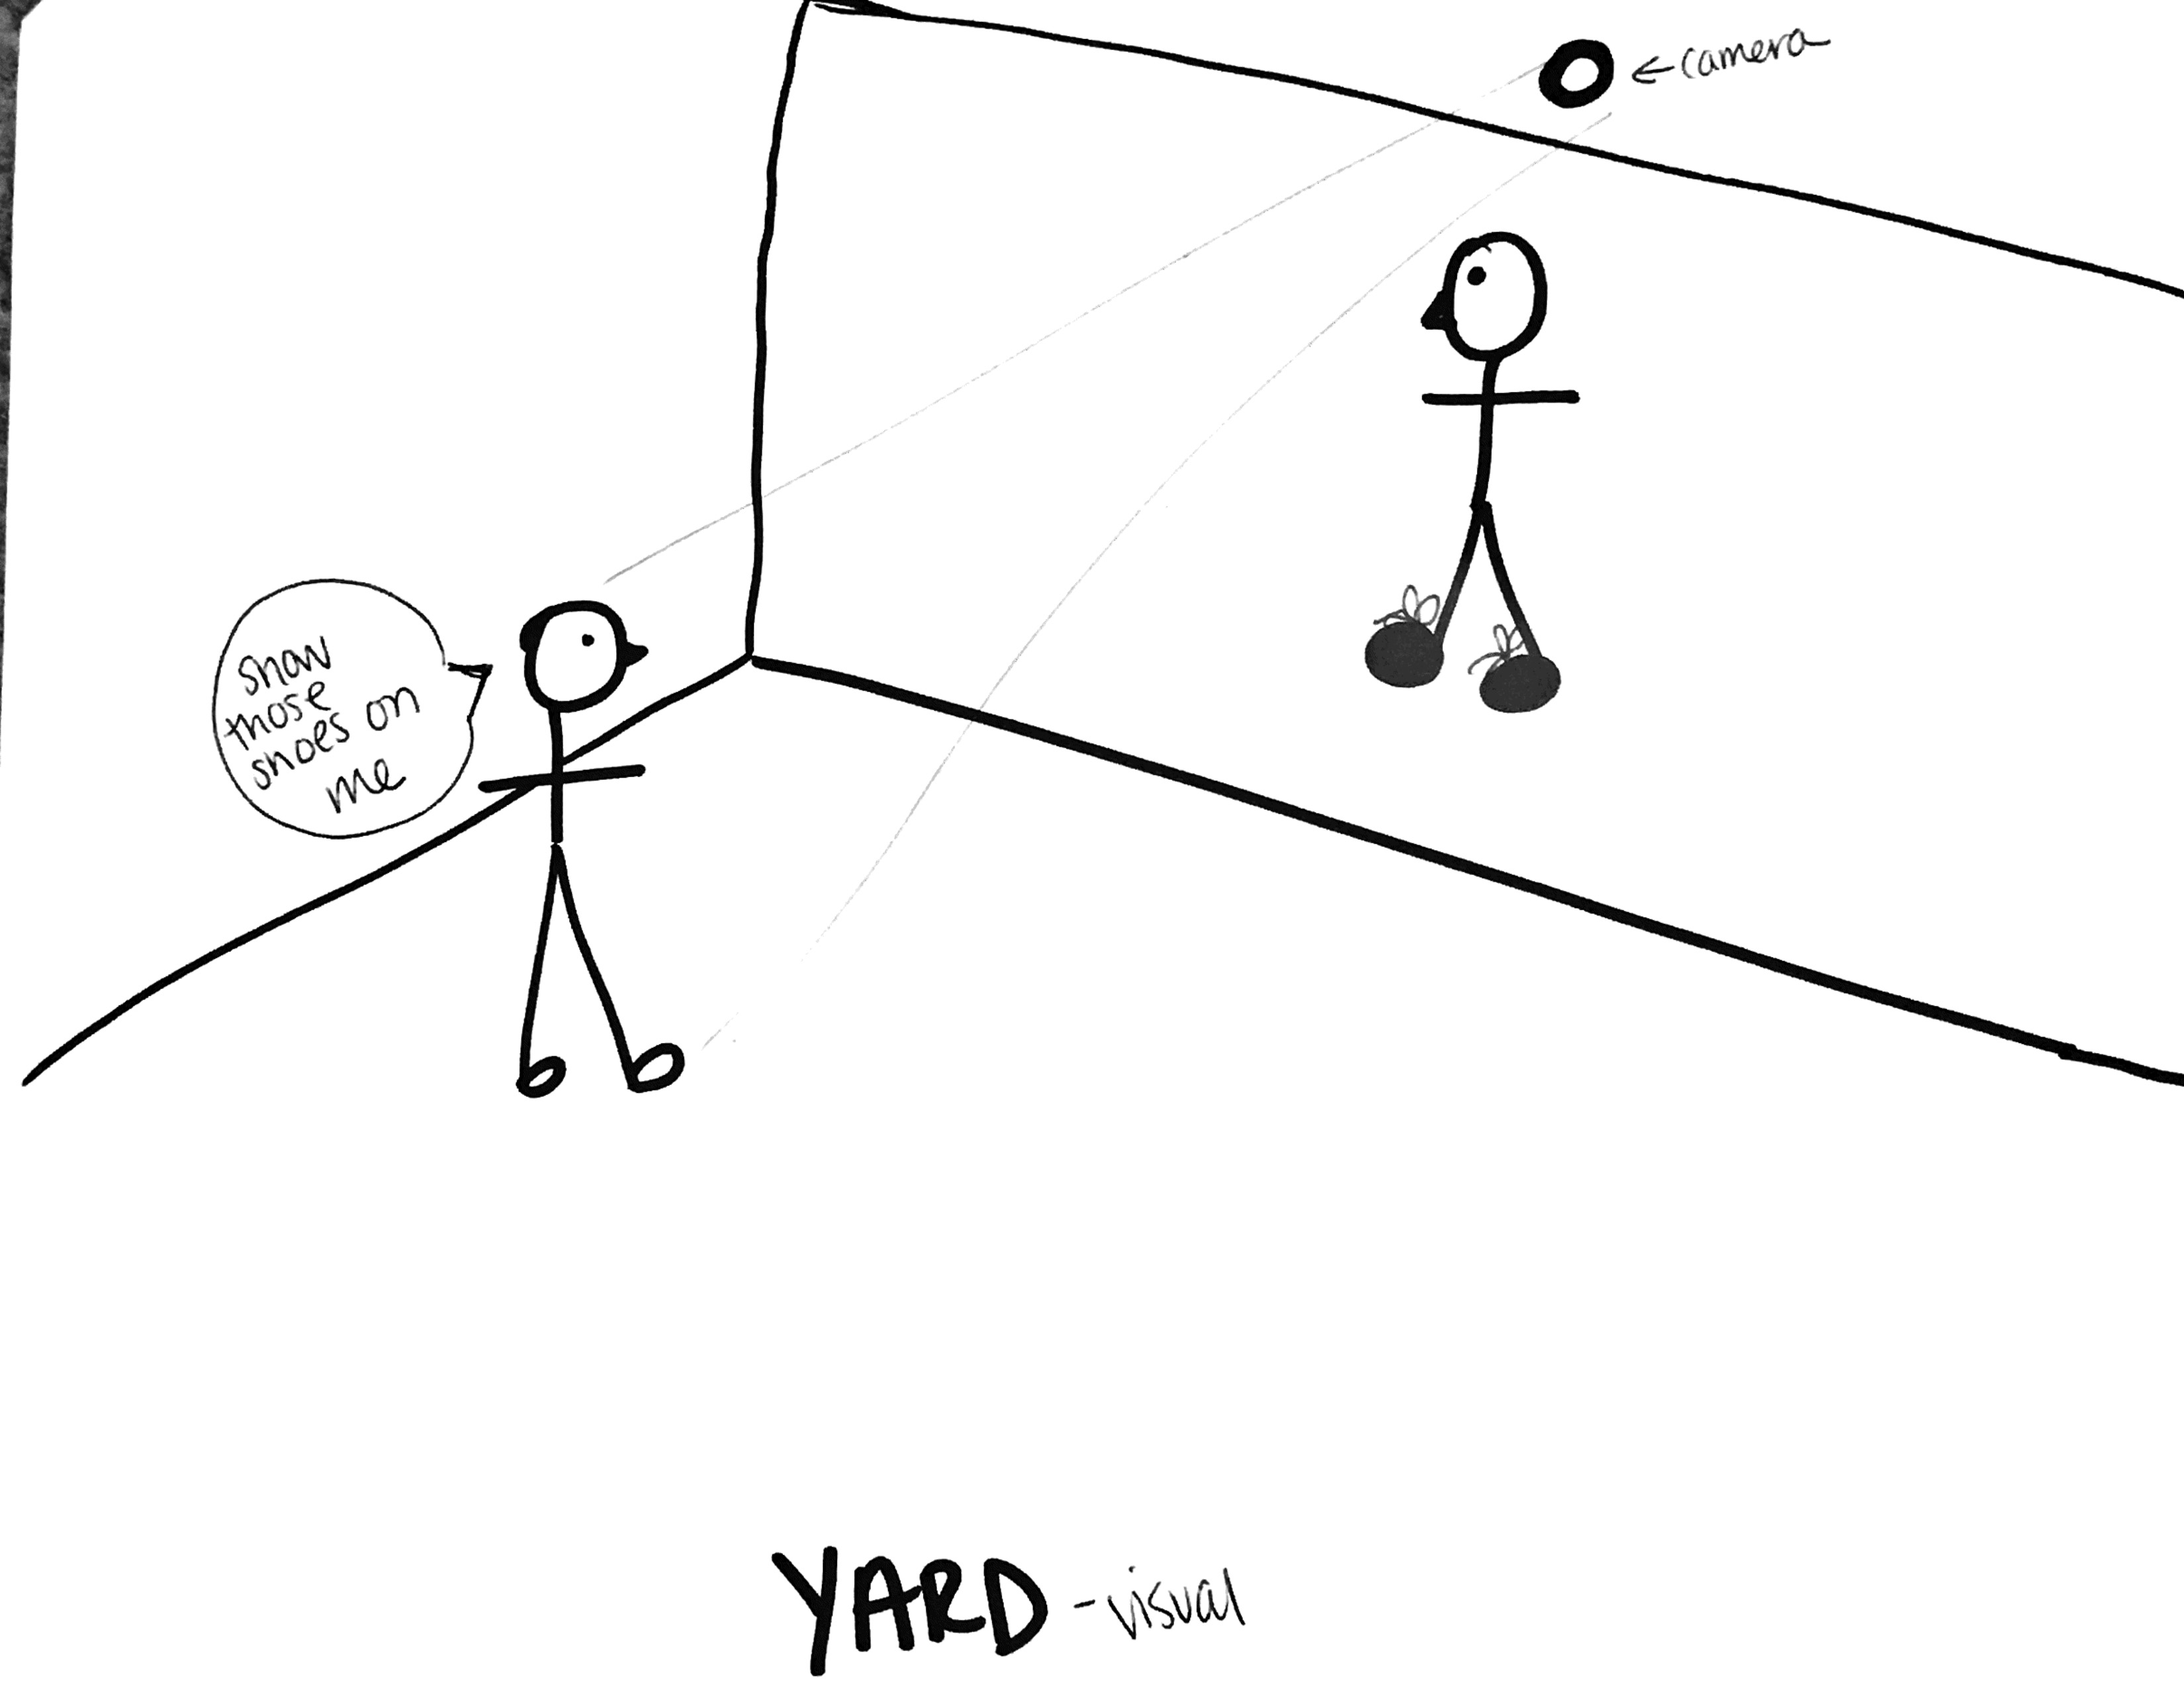 ← camera
show
those
shoes on
me
YARD - visual